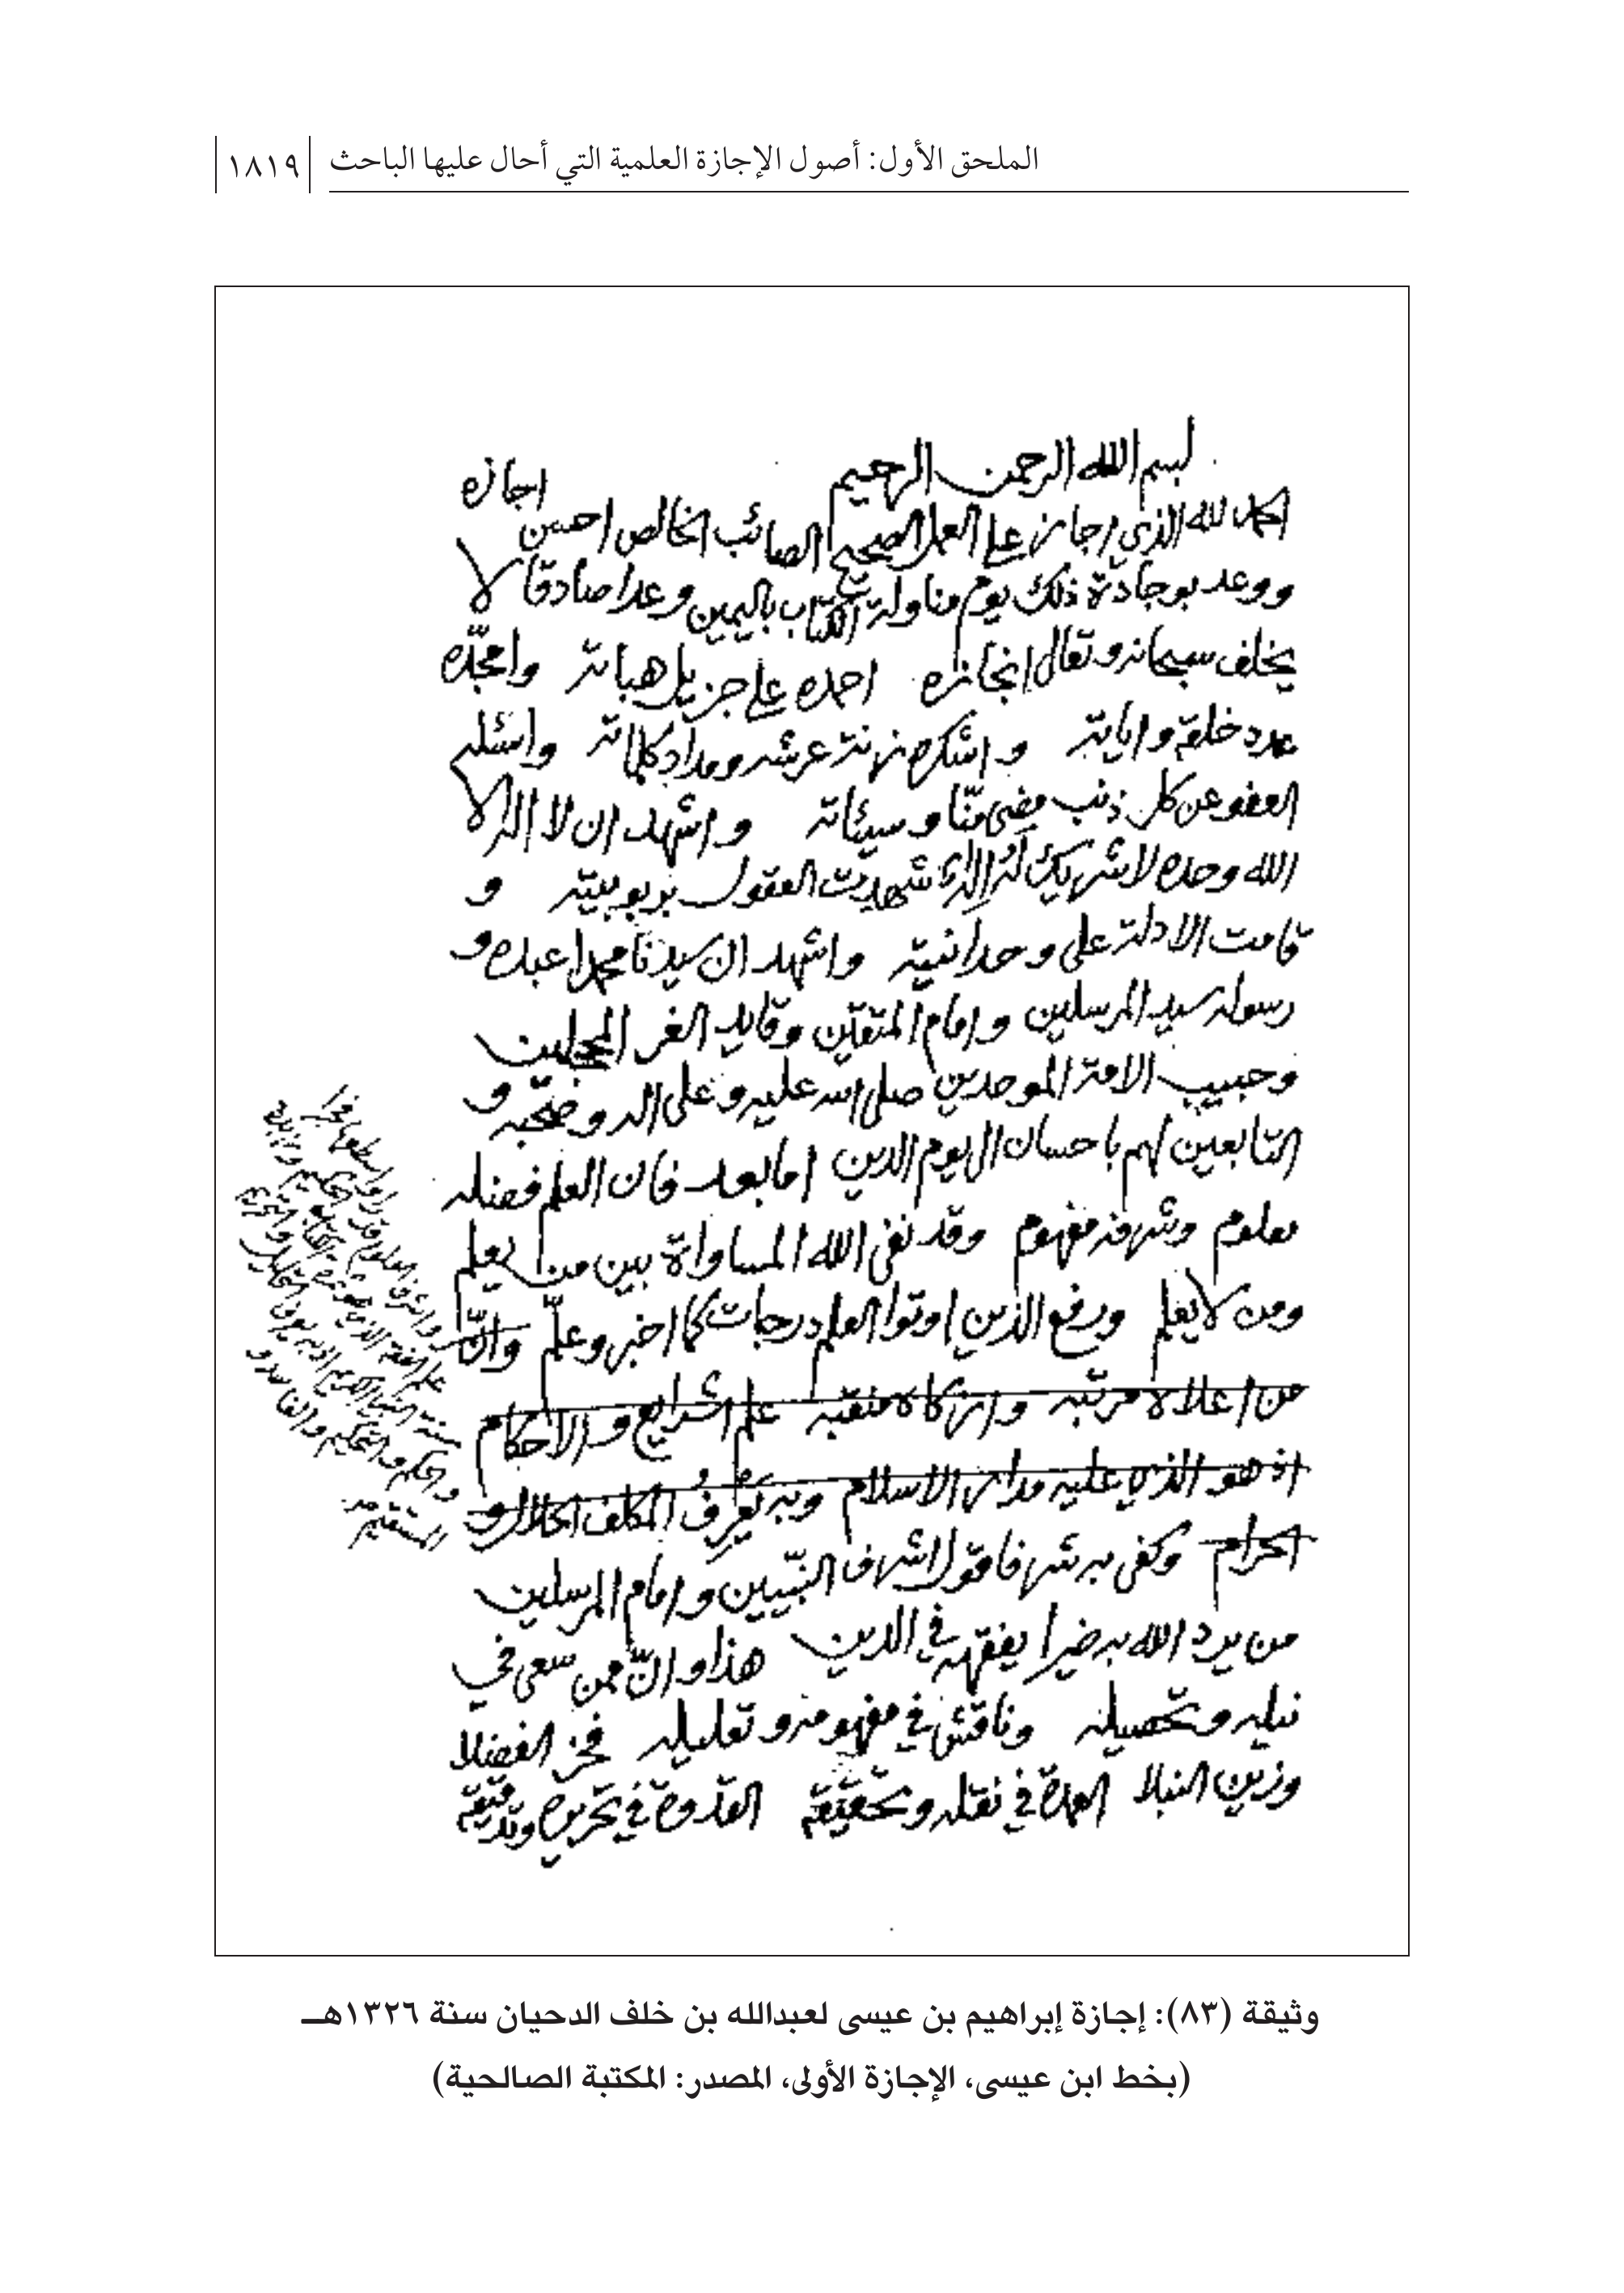 الملحق الأول: أصول الإجازة العلمية التي أحال عليها الباحث ١٨١٩
بسم الله الرحمن الرحيم
الحمد لله الذي اجاز على العمل الصحيح الصائب الخالص احسن اجازه
ووعد بوجادة ذلك يوم مناولة الكتاب باليمين وعدا صادقا لا
يخلف سبحانه وتعالى انجازه احمده على جزيل هباته وامجّده
عدد خلقه واياته واشكره زنة عرشه ومداد كلماته واسئله
العفو عن كل ذنب مضى منّا وسيئاته واشهد ان لا اله الا
الله وحده لا شريك له الذي شهدت العقول بربوبيته و
قامت الادلة على وحدانيته واشهد ان سيدنا محمدا عبده و
رسوله سيد المرسلين وامام المتقين وقايد الغر المحجلين
وحبيب الامة الموحدين صلى الله عليه وعلى اله وصحبه و
التابعين لهم باحسان الى يوم الدين اما بعد فان العلم فضله
معلوم وشرفه مفهوم وقد نفى الله المساواة بين من يعلم
ومن لا يعلم ورفع الذين اوتوا العلم درجات كما اخبر وعلّم وانّ
من اعلاه مرتبه وازكاه منقبه علم الشرايع والاحكام
اذ هو الذي عليه مدار الاسلام وبه يَعْرِفُ المكلف الحلال و
الحرام وكفى به شرفا قول اشرف النبيين وامام المرسلين
من يرد الله به خيرا يفقهه في الدين هذا وانّ ممن سعى في
نيله وتحصيله وناقش في مفهومه وتعليله فخر الفضلا
وزين النبلا العمدة في نقله وتحقيقه القدوة في تحريره وتدقيقه
وثيقة (٨٣): إجازة إبراهيم بن عيسى لعبدالله بن خلف الدحيان سنة ١٣٢٦هـ
(بخط ابن عيسى، الإجازة الأولى، المصدر: المكتبة الصالحية)